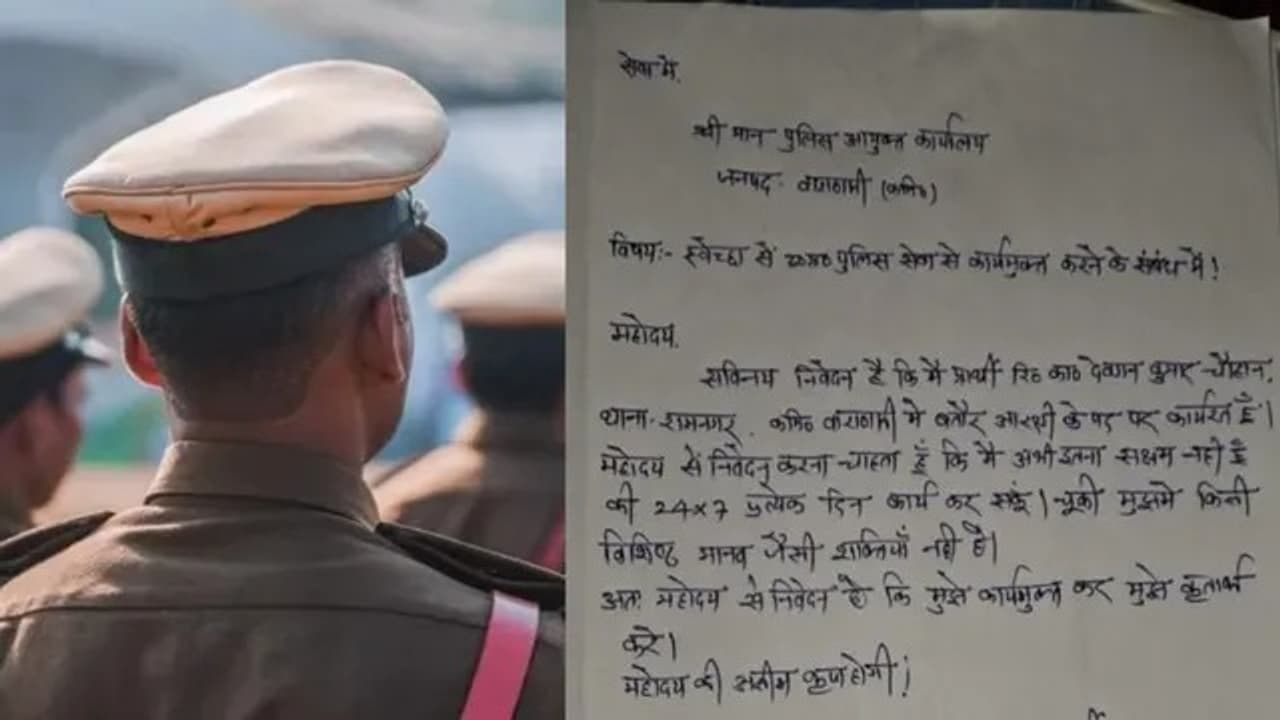 सेवा में,
श्री मान पुलिस आयुक्त कार्यालय
जनपद- वाराणसी (कमि०)
विषय:- स्वेच्छा से उ०प्र० पुलिस सेवा से कार्यमुक्त करने के संबंध में!
महोदय,
सविनय निवेदन है कि मैं प्रार्थी रि० का० देव्यान कुमार चौहान,
थाना- रामनगर, कमि० वाराणसी में बतौर आरक्षी के पद पर कार्यरत हूँ।
महोदय से निवेदन करना चाहता हूँ कि मैं अभी इतना सक्षम नही हूँ
की 24x7 प्रत्येक दिन कार्य कर सकूं। चूकी मुझमे किसी
विशिष्ट मानव जैसी शक्तियाँ नही है।
अतः महोदय से निवेदन है कि मुझे कार्यमुक्त कर मुझे कृतार्थ
करे।
महोदय की असीम कृपा होगी!